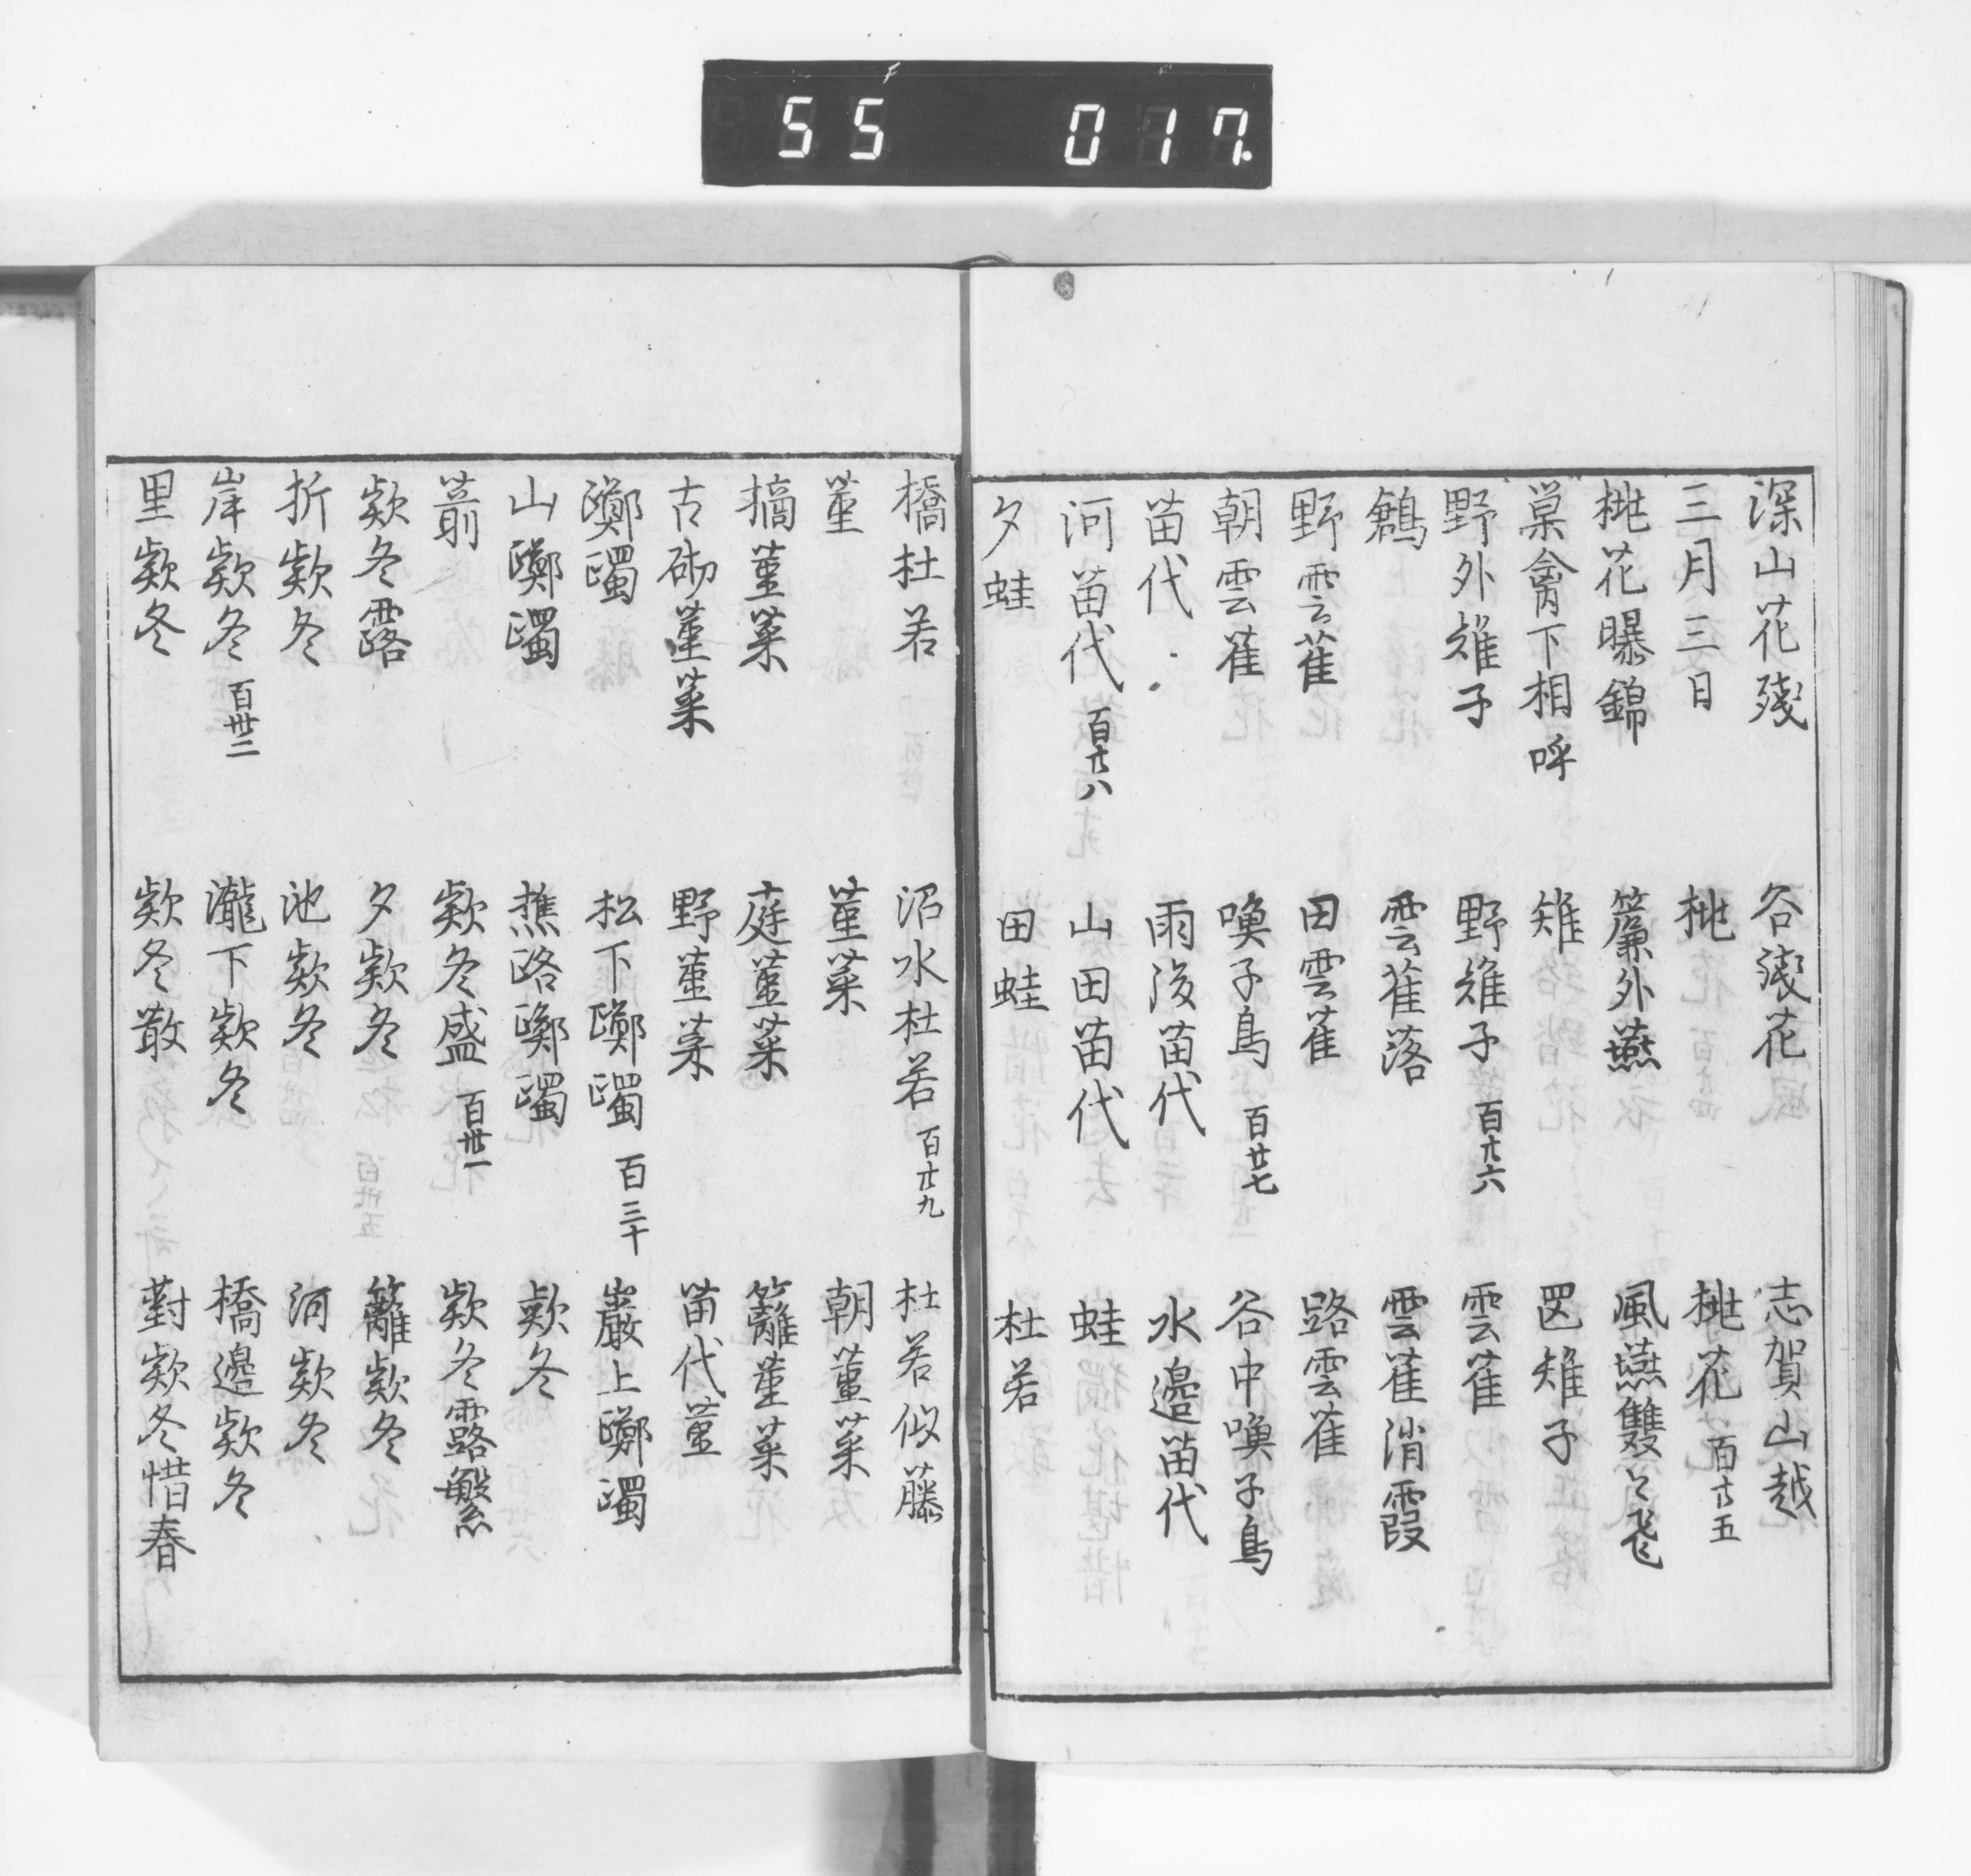 55 017
深山花殘 谷殘花 志賀山越
三月三日 桃 桃花 百廿五
桃花曝錦 簾外燕 風燕雙〻飛
巣禽下相呼 雉 罡雉子
野外雉子 野雉子 百廿六 雲雀
鶴 雲雀落 雲雀消霞
野雲雀 田雲雀 路雲雀
朝雲雀 喚子鳥 百廿七 谷中喚子鳥
苗代 雨後苗代 水邉苗代
河苗代 百廿八 山田苗代 蛙
夕蛙 田蛙 杜若
橋杜若 沼水杜若 百廿九 杜若似藤
菫 菫菜 朝菫菜
摘菫菜 庭菫菜 籬菫菜
古砌菫菜 野菫菜 苗代菫
躑躅 松下躑躅 百三十 巖上躑躅
山躑躅 樵路躑躅 欵冬
莭 欵冬盛 百卅一 欵冬露繁
欵冬露 夕欵冬 籬欵冬
折欵冬 池欵冬 河欵冬
岸欵冬 百卅二 瀧下欵冬 橋邉欵冬
里欵冬 欵冬散 對欵冬惜春